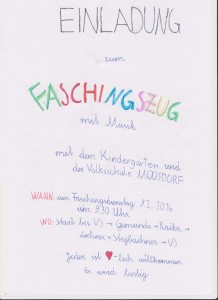 EINLADUNG
zum
FASCHINGSZUG
mit Musik
mit dem Kindergarten und
der Volksschule MOOSDORF
WANN: am Faschingsdienstag 9.2.2016
um 9.30 Uhr
WO: Start bei VS → Gemeinde → Raika →
Lechner → Stegbuchner → VS
Jeder ist ♥-lich willkommen
Es wird lustig